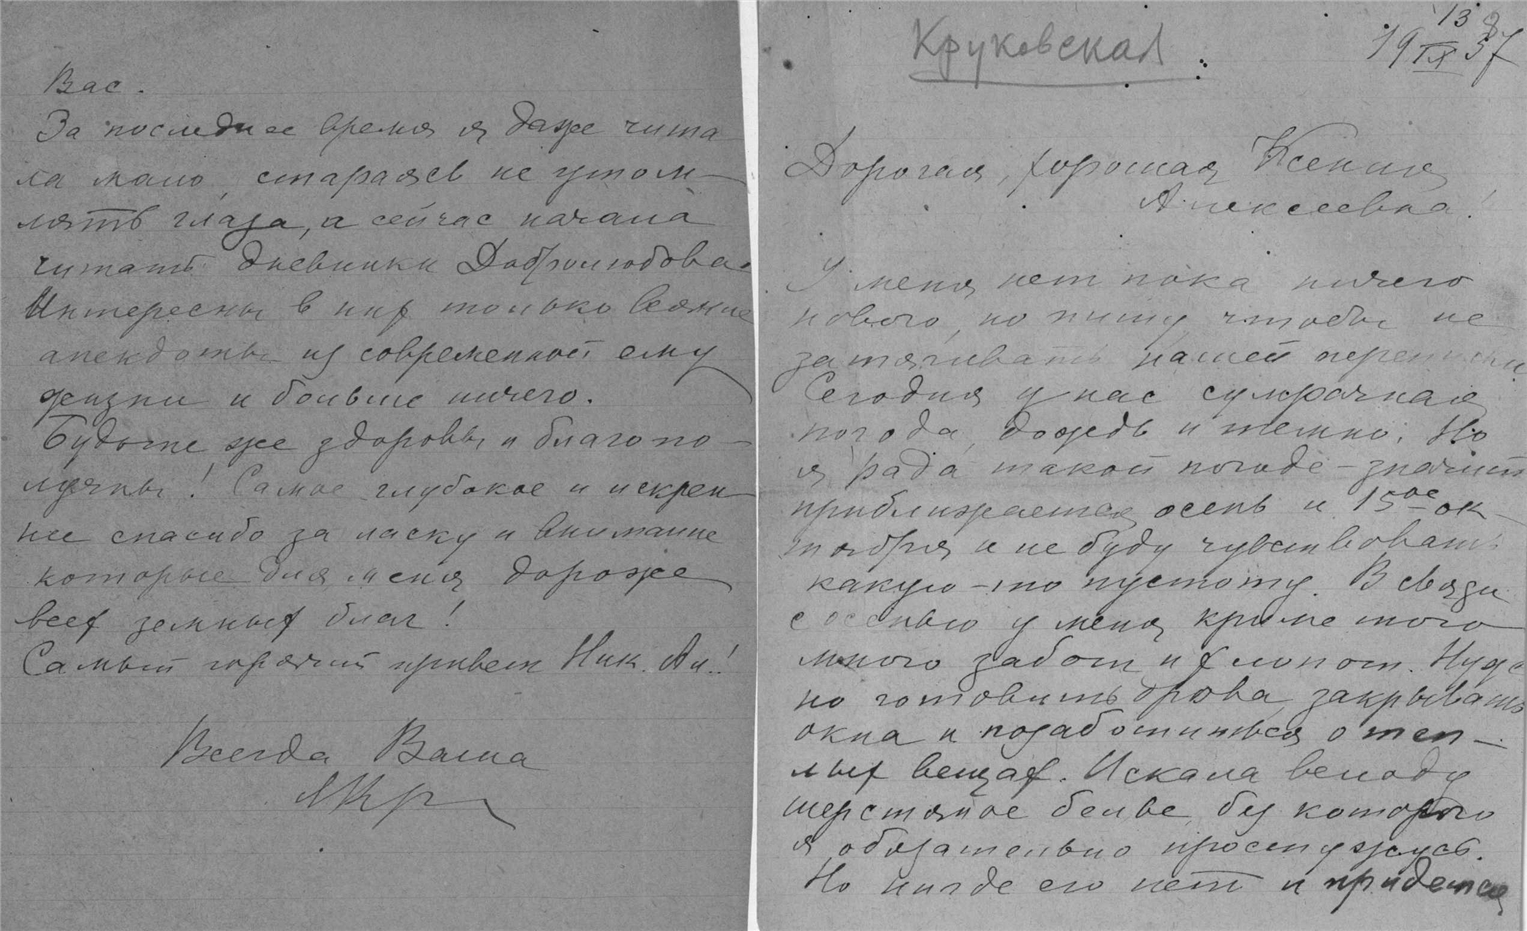 Вас.
За последнее время я даже чита
ла мало, стараясь не утом-
лять глаза, а сейчас начала
читать дневники Добролюбова.
Интересны в них только всякие
анекдоты из современной ему
жизни и больше ничего.
Будьте же здоровы и благопо-
лучны! Самое глубокое и искрен-
нее спасибо за ласку и внимание
которые для меня дороже
всех земных благ!
Самый горячий привет Ник. Ан.!
Всегда Ваша
МКр
Круковская
13
19 IX 37
Дорогая, хорошая Ксения
Алексеевна!
У меня нет пока ничего
нового, но пишу чтобы не
затягивать нашей переписки
Сегодня у нас сумрачная
погода, дождь и темно. Но
я рада такой погоде – значит
приближается осень и 15ое ок-
тября и не буду чувствовать
какую-то пустоту. В связи
с осенью у меня кроме того
много забот и хлопот. Нуж
но готовить дрова, закрывать
окна и позаботиться о теп-
лых вещах. Искала всюду
шерстяное белье, без которого
я обязательно простужусь.
Но нигде его нет и придется